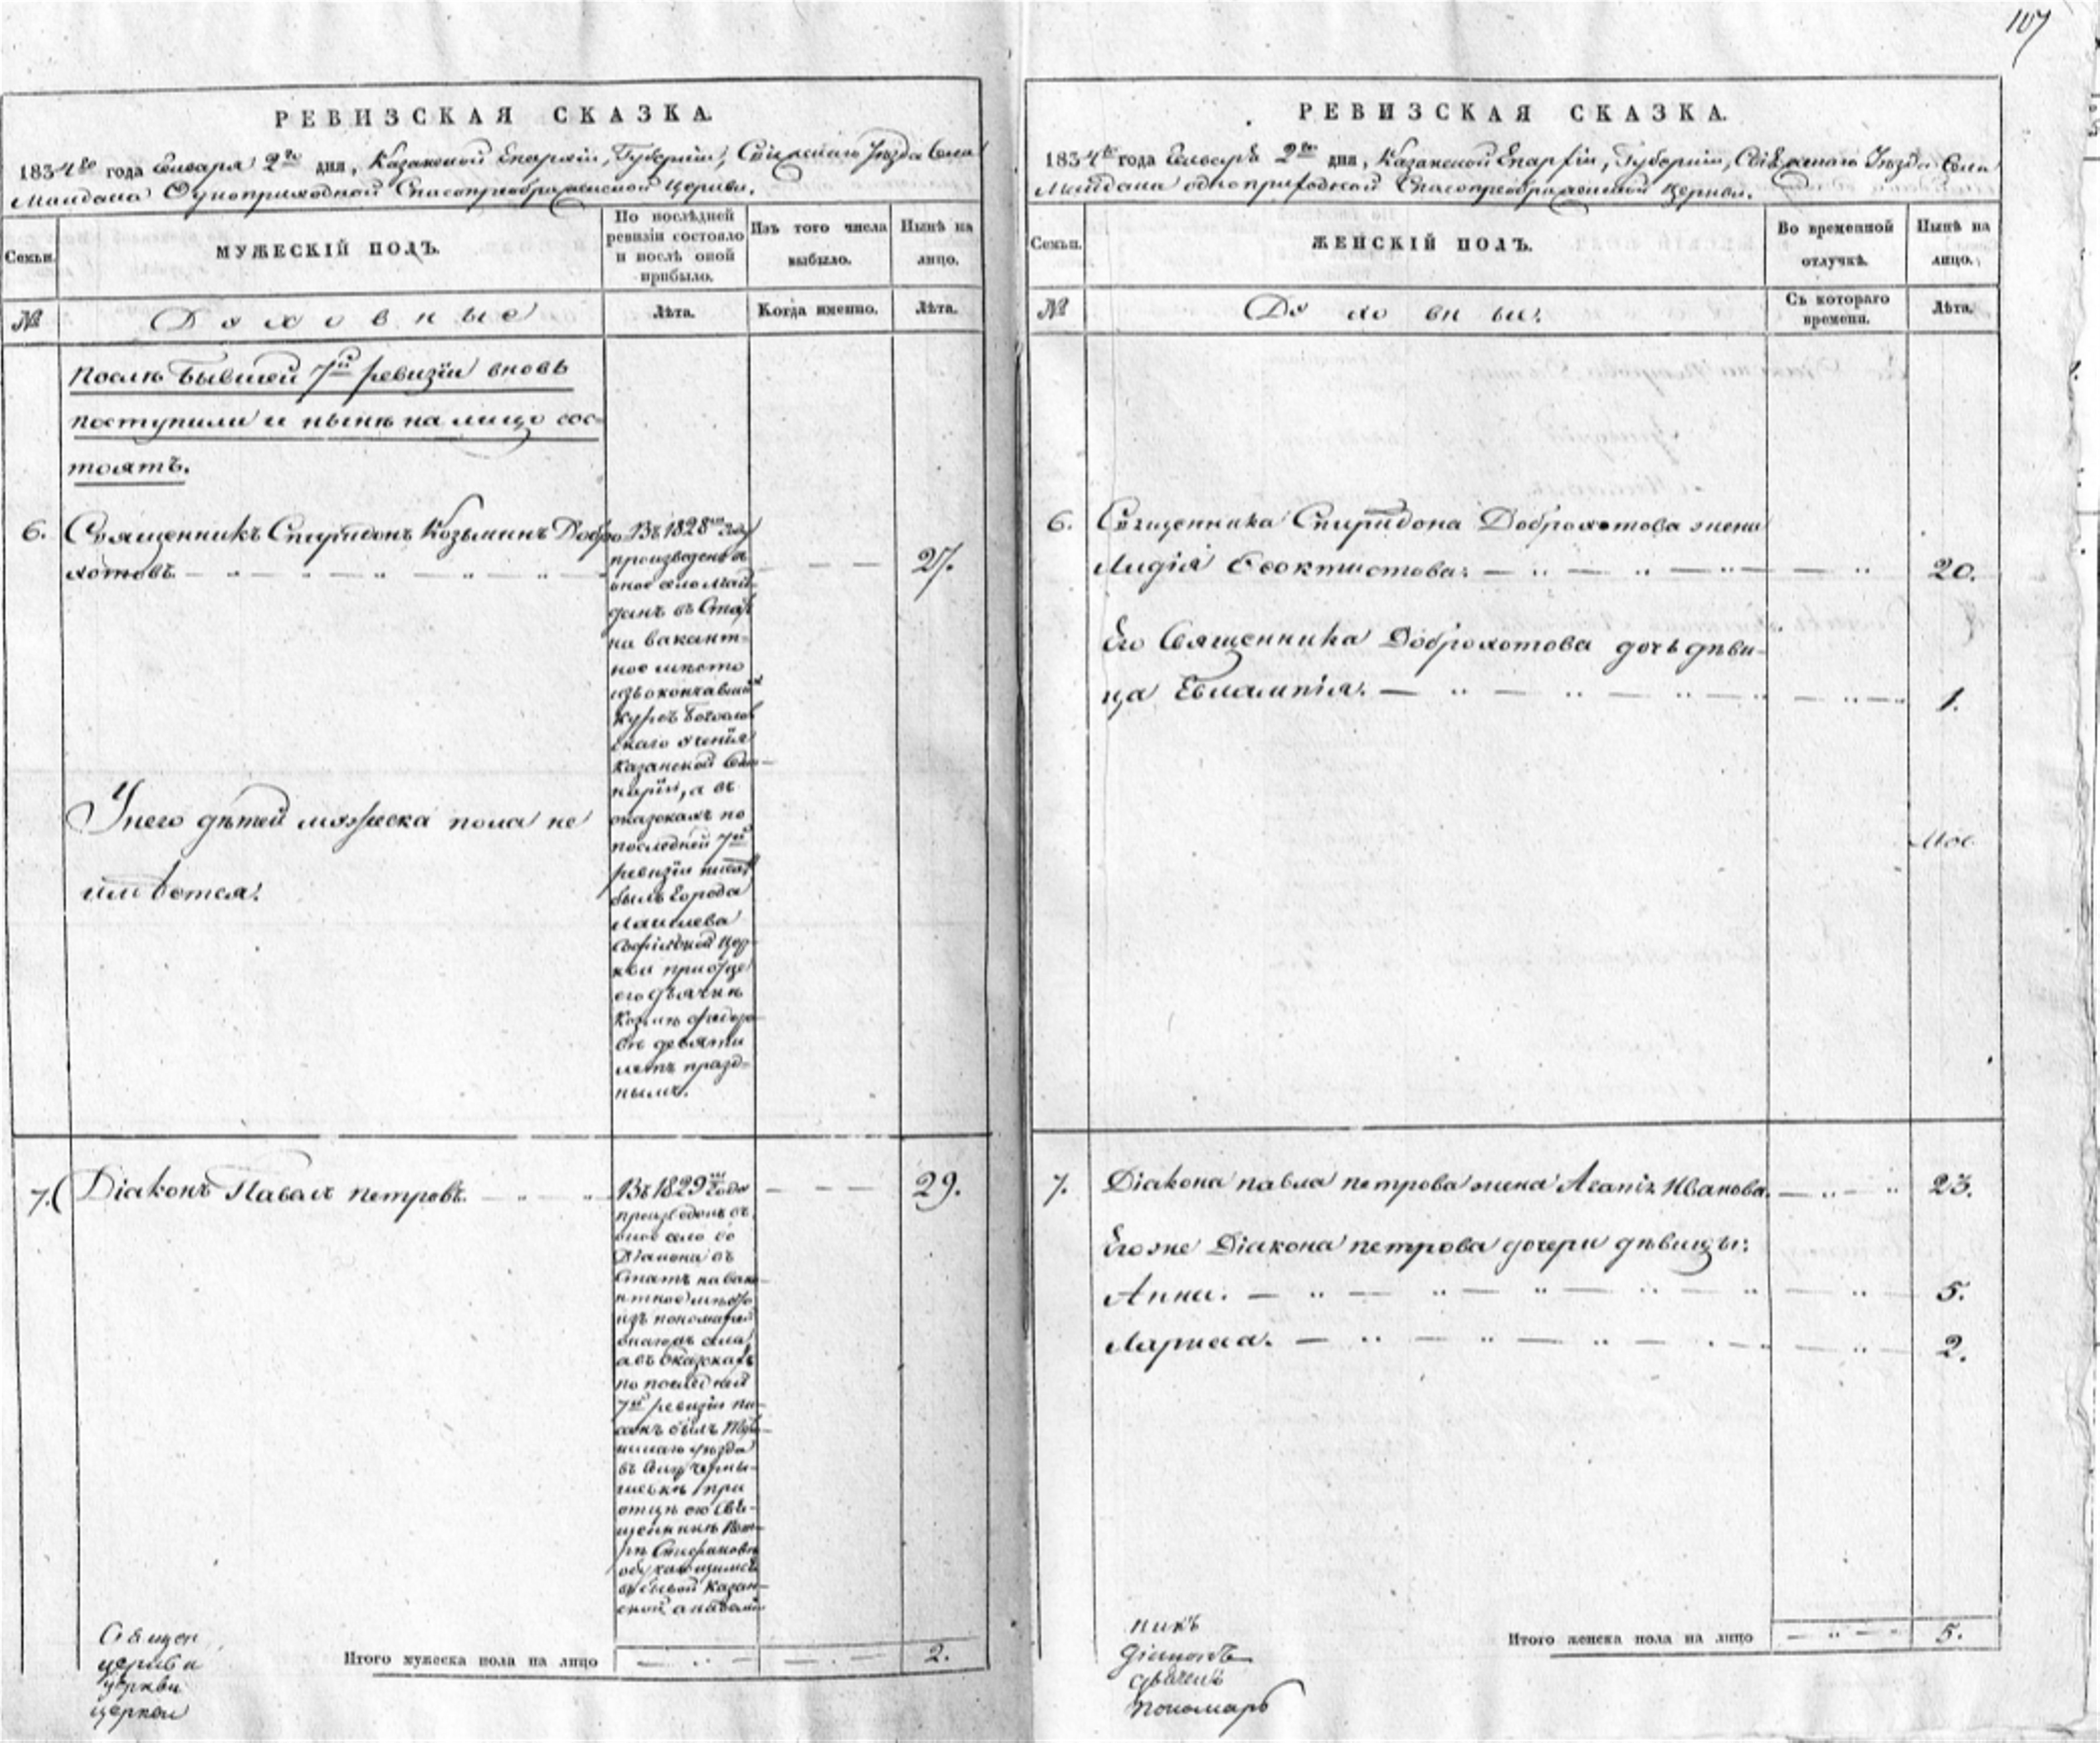 107
РЕВИЗСКАЯ СКАЗКА.
1834го года Генваря 2го дня, Казанской Епархіи, Губерніи, Свіяжскаго Уѣзда Села
Маидана Одноприходной Спасопреображенской Церкви.
Семьи.
МУЖЕСКІЙ ПОЛЪ.
По послѣдней ревизіи состояло и послѣ оной прибыло.
Изъ того числа выбыло.
Нынѣ на лицо.
№
Духовные
Лѣта.
Когда именно.
Лѣта.
Послѣ бывшей 7й ревизіи вновь
поступили и нынѣ на лицо сос-
тоятъ.
6.
Священникъ Спиридонъ Козьминъ Добро-
хотовъ.
27.
Въ 1828м году
произведенъ въ
оное село Май-
данъ въ Штат
на вакант-
ное мѣсто
изъ окончавших
курсъ Богослов
скаго ученія
Казанской Семи-
наріи, а въ
сказкахъ по
последней 7й
ревизіи писан
былъ Города
Лаишева
Софійской Цер-
кви при отце
его Дьячке
Козме Федоро
ве девяти
летъ празд-
нымъ.
У него дѣтей мужеска пола не
имѣется.
7.
Діаконъ Павелъ Петровъ.
29.
Въ 1829м года
произведенъ въ
оное село во
Діакона въ
Штатъ на вака-
нтное мѣсто
изъ пономарей
онагожъ села,
а въ сказкахъ
по последней
7й ревизіи пи-
санъ былъ
уезда
при
отцѣ его Свя-
щеннике Пет-
ре Стефанове
обучающимся
въ бывшей Казан-
ской академіи
Священ
церкви
церкви
церкви
Итого мужеска пола на лицо
2.
РЕВИЗСКАЯ СКАЗКА.
1834го года Генваря 2го дня, Казанской Епархіи, Губерніи, Свіяжскаго Уѣзда Села
Майдана одноприходной Спасопреображенской Церкви.
Семьи.
ЖЕНСКІЙ ПОЛЪ.
Во временной отлучкѣ.
Нынѣ на лицо.
№
Духовные.
Съ котораго времени.
Лѣта.
6.
Священника Спиридона Доброхотова жена
Лидія Ѳеоктистова.
20.
Его Священника Доброхотова дочь дѣви-
ца Евлампія.
1.
7.
Діакона Павла Петрова жена Агапія Иванова.
23.
Его же Діакона Петрова дочери дѣвицы:
Анна.
5.
Лариса.
2.
никъ
діаконъ
дьячекъ
пономарь
Итого женска пола на лицо
5.